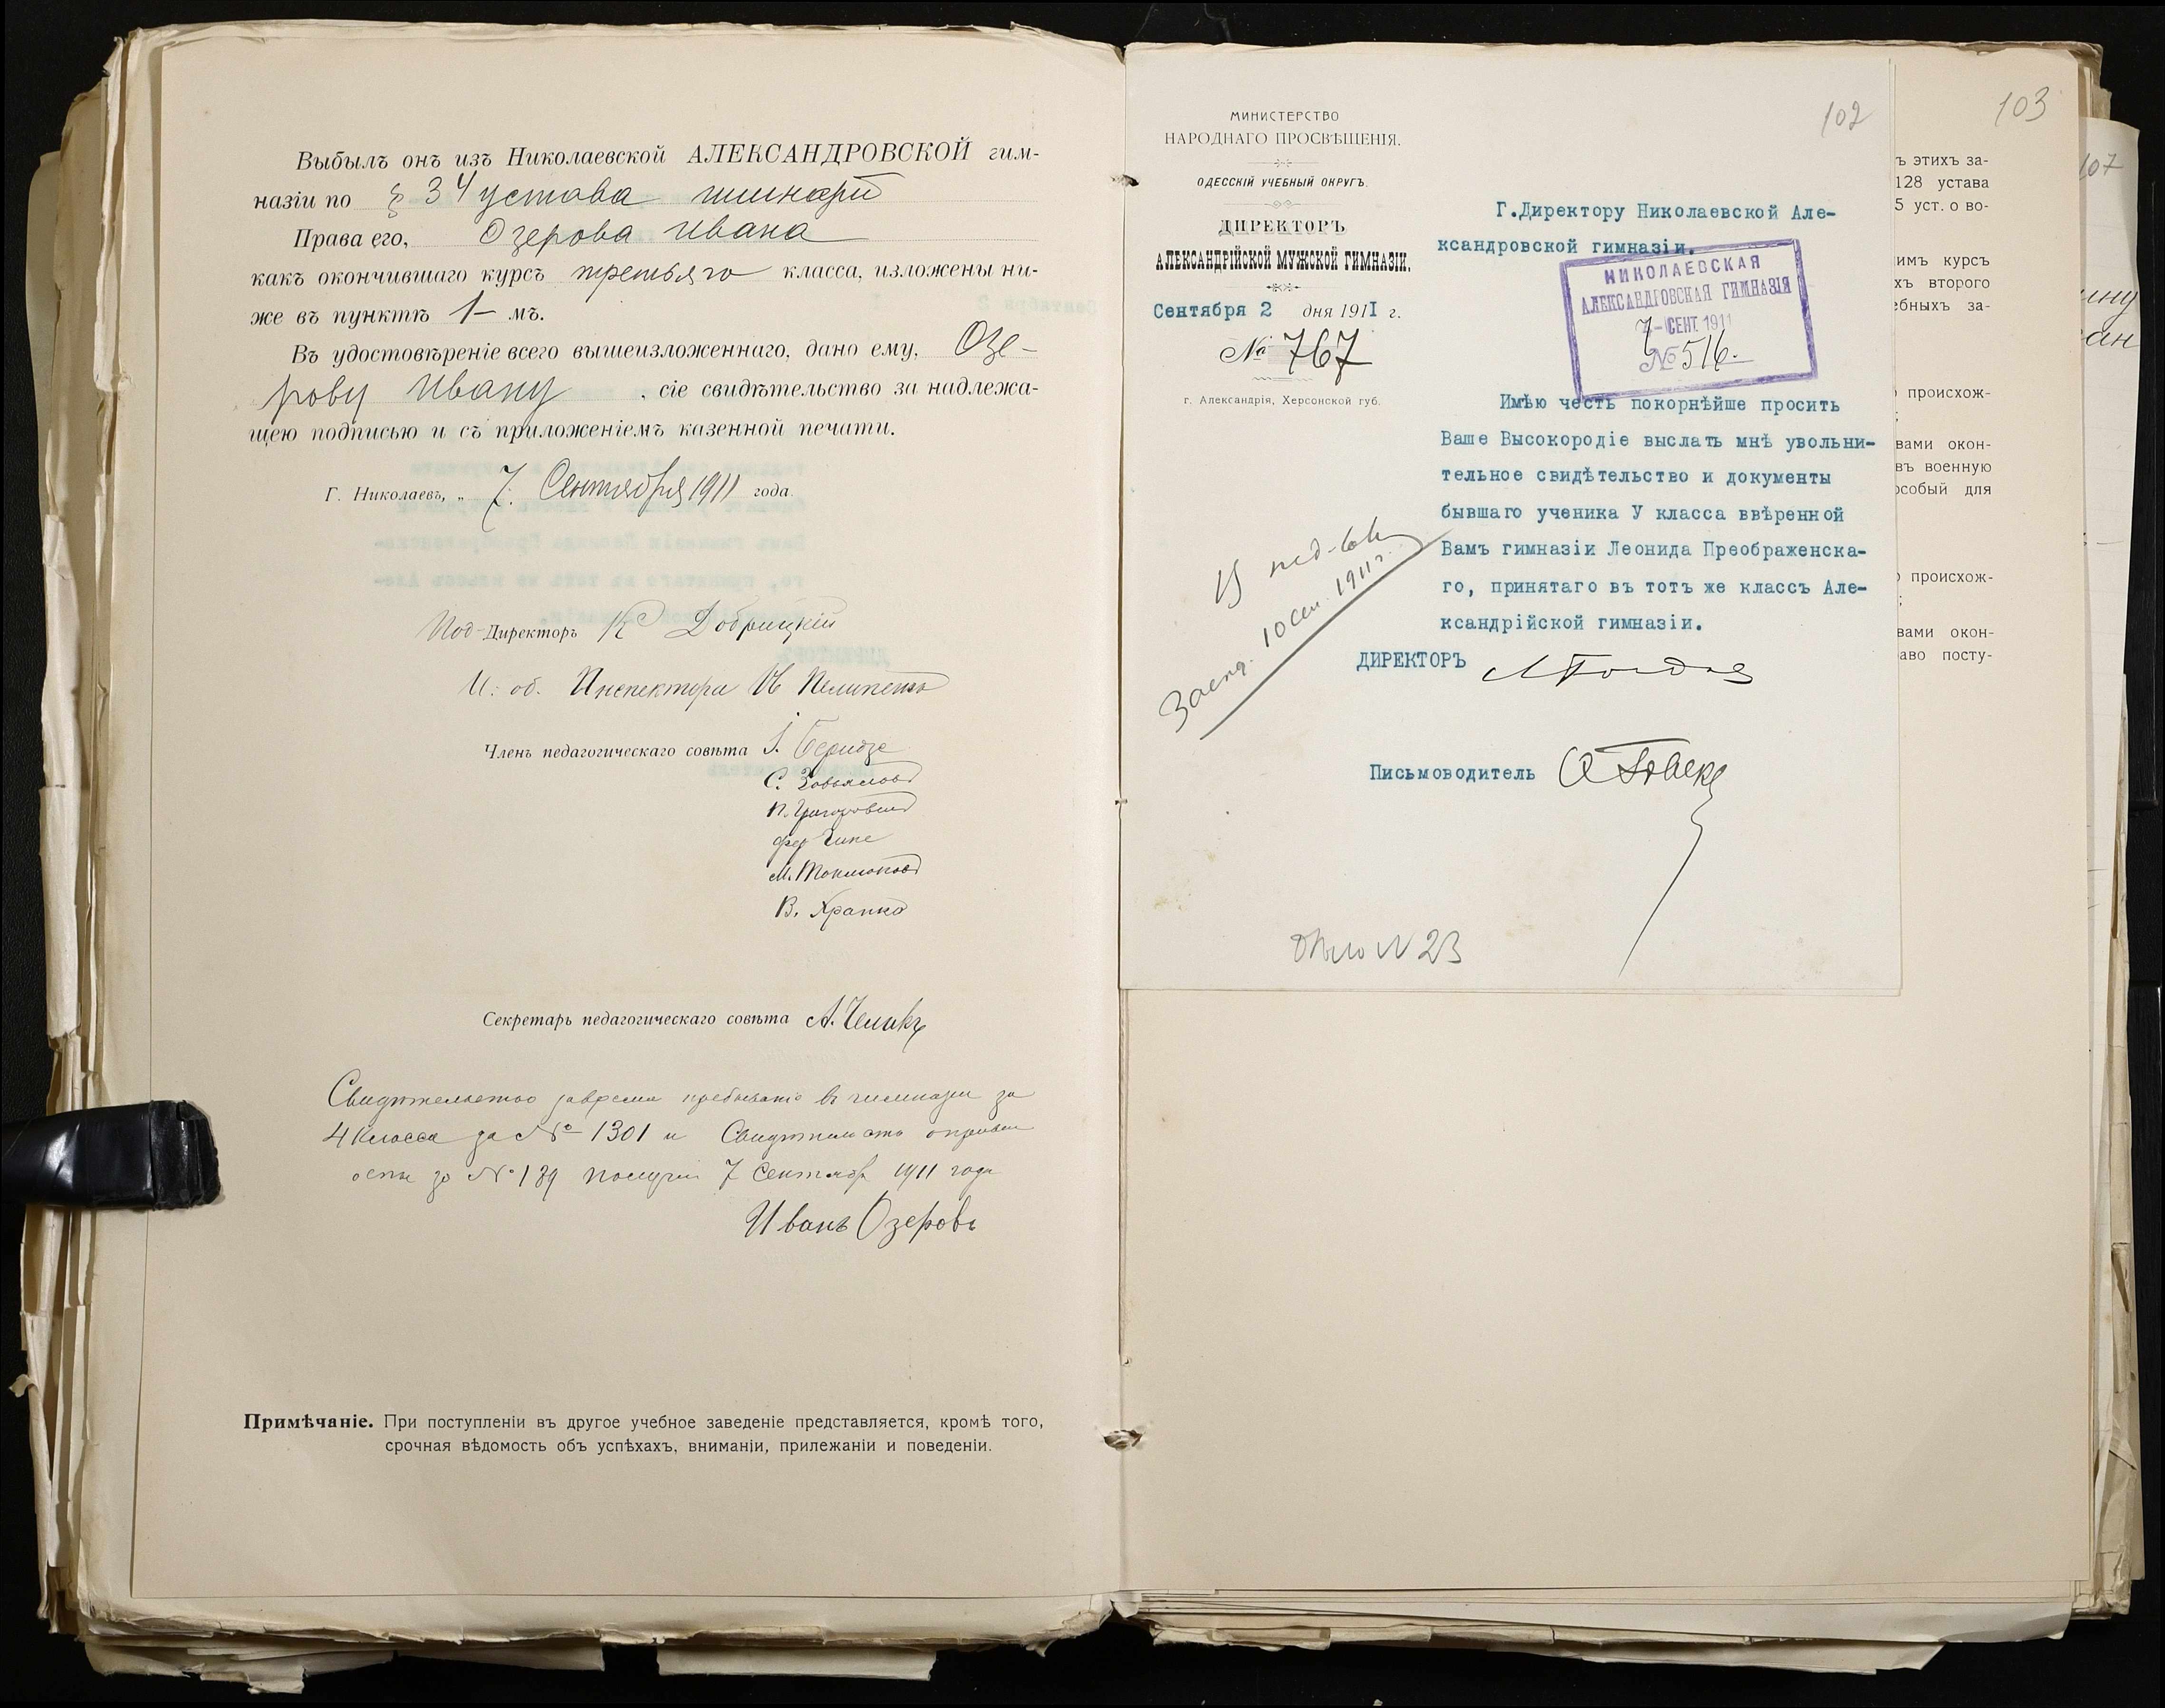 Выбылъ онъ изъ Николаевской АЛЕКСАНДРОВСКОЙ гим-
назіи по § 34 устава гимназій
Права его, Озерова Ивана
какъ окончившаго курсъ третьяго класса, изложены ни-
же въ пунктѣ 1 - мъ.
Въ удостовѣреніе всего вышеизложеннаго, дано ему, Озе-
рову Ивану, сіе свидѣтельство за надлежа-
щею подписью и съ приложеніемъ казенной печати.
Г. Николаевъ, „ 7. Сентября 1911 года.
Директоръ К Добрицкій
И. об. Инспектора
Членъ педагогическаго совѣта І. Беридзе
С. Завьяловъ
П. Григоровичъ
М. Токмаковъ
В. Храпко
Секретарь педагогическаго совѣта А.
Свидѣтельство за время пребыванія въ гимназіи за
4 класса за № 1301 и Свидѣтельство о привитіи
оспы за № 189 получилъ 7 Сентября 1911 года
Иванъ Озеровъ
Примѣчаніе. При поступленіи въ другое учебное заведеніе представляется, кромѣ того,
срочная вѣдомость объ успѣхахъ, вниманіи, прилежаніи и поведеніи.
102
МИНИСТЕРСТВО
НАРОДНАГО ПРОСВѢЩЕНІЯ.
ОДЕССКІЙ УЧЕБНЫЙ ОКРУГЪ.
ДИРЕКТОРЪ
АЛЕКСАНДРІЙСКОЙ МУЖСКОЙ ГИМНАЗІИ.
Сентября 2 дня 1911 г.
№ 767
г. Александрія, Херсонской губ.
Г.Директору Николаевской Але-
ксандровской гимназіи.
НИКОЛАЕВСКАЯ
АЛЕКСАНДРОВСКАЯ ГИМНАЗІЯ
7 - СЕНТ. 1911
№ 516.
Имѣю честь покорнѣйше просить
Ваше Высокородіе выслать мнѣ увольни-
тельное свидѣтельство и документы
бывшаго ученика У класса ввѣренной
Вамъ гимназіи Леонида Преображенска-
го, принятаго въ тотъ же классъ Але-
ксандрійской гимназіи.
ДИРЕКТОРЪ
Письмоводитель
10 сен. 1911 г.
Дѣло N 23
103
ъ этихъ за-
128 устава
5 уст. о во-
имъ курсъ
хъ второго
ебныхъ за-
происхож-
;
вами окон-
въ военную
особый для
происхож-
;
вами окон-
аво посту-
107